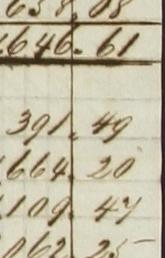 638.08
646.61
391.49
664.20
109.47
062.25